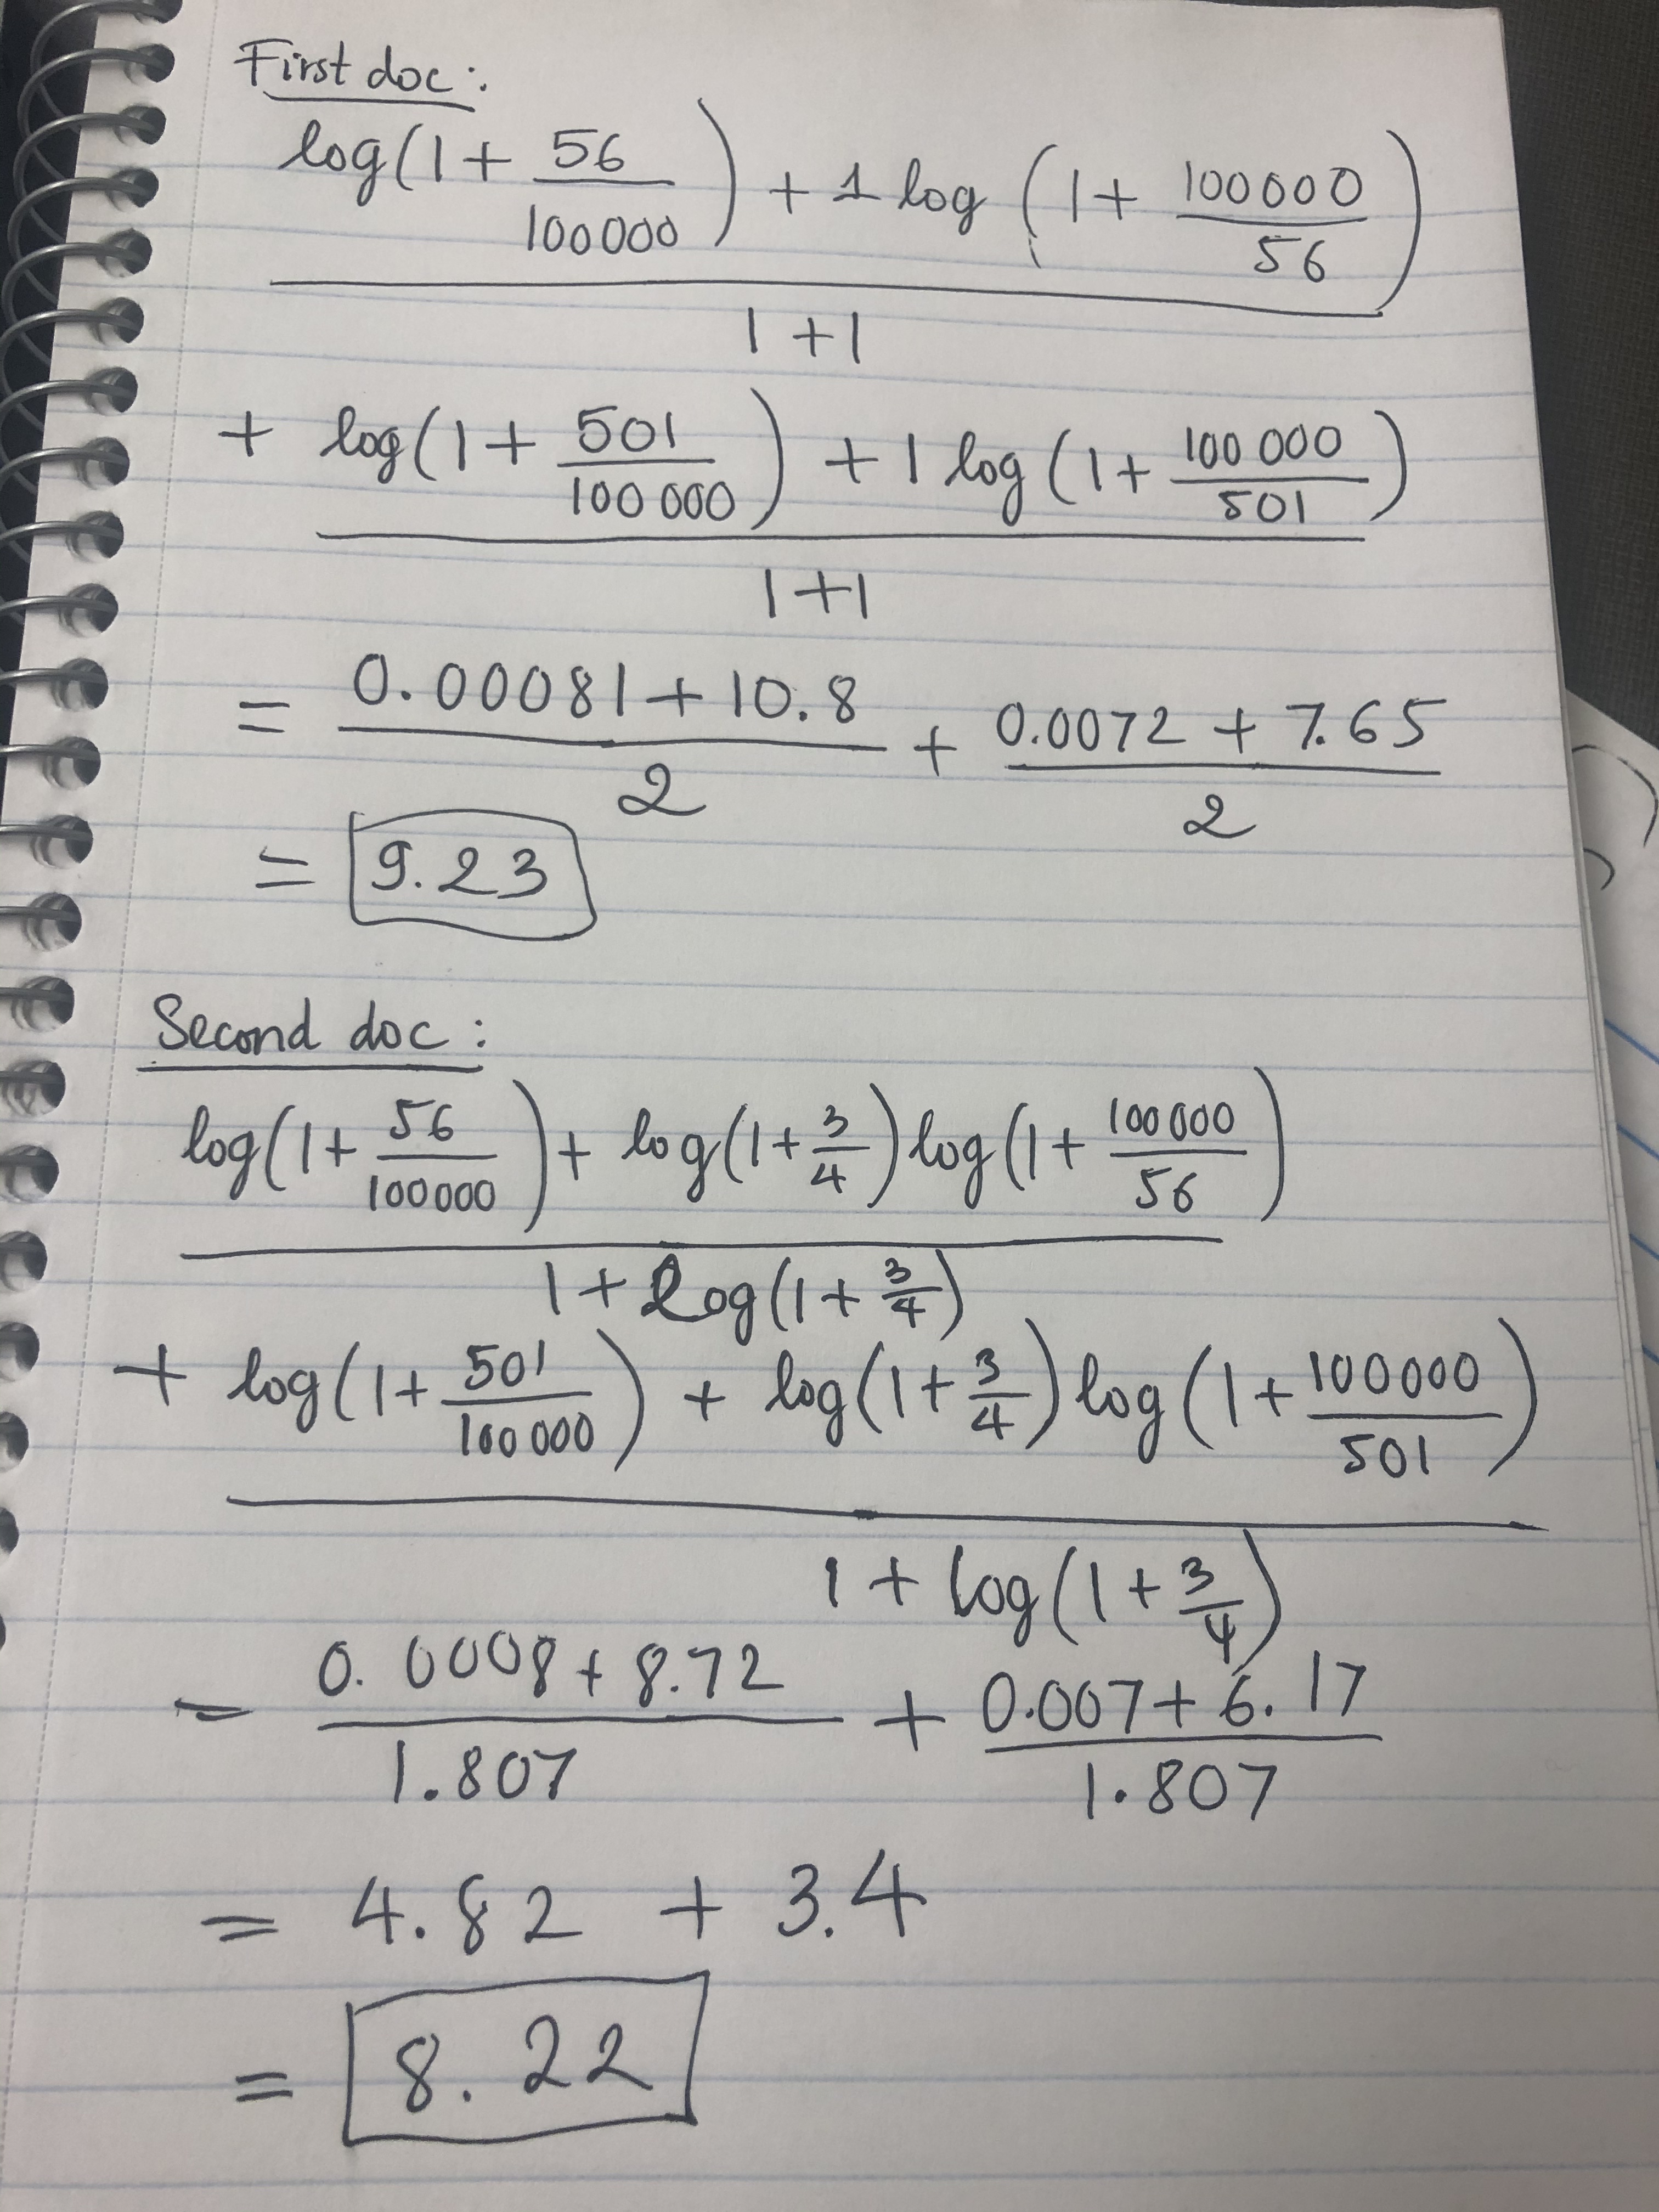 First doc:
log(1 + 56/100000) + 1 log(1 + 100000/56)
1 + 1
+ log(1 + 501/100000) + 1 log(1 + 100000/501)
1 + 1
= 0.00081 + 10.8 / 2 + 0.0072 + 7.65 / 2
= 9.23
Second doc:
log(1 + 56/100000) + log(1 + 3/4) log(1 + 100000/56)
1 + log(1 + 3/4)
+ log(1 + 501/100000) + log(1 + 3/4) log(1 + 100000/501)
1 + log(1 + 3/4)
= 0.0008 + 8.72 / 1.807 + 0.007 + 6.17 / 1.807
= 4.82 + 3.4
= 8.22